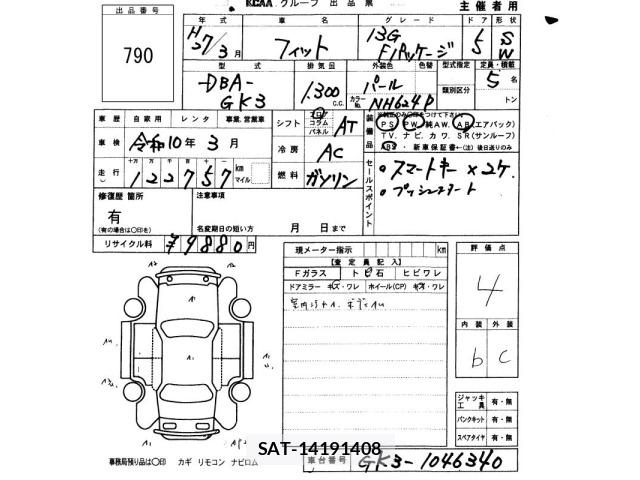 KCAA グループ 出品票
主催者用
出品番号
790
年式 車名 グレード ドア 形状
H27/3月 フィット 13G Fパッケージ 5 SW
型式 排気回 外装色 色替 型式指定 定員・積載
DBA-GK3 1,300 C.C. パール カラーNo. NH624P 類別区分 5名 トン
車歴 自家用 レンタ 事業、営業車
シフト フロア コラム パネル AT
装備品 ※純正のみ〇印をつけて下さい。
PS PW 純AW. AB(エアバック)
TV. ナビ. カワ. SR(サンルーフ)
ABS 新車保証書←(注)後日送りのみ
車検 令和10年3月
冷房 AC
走行 十万 万 千 百 十 一 122757 km マイル
燃料 ガソリン
セールスポイント
・スマートキー×2ケ
・プッシュスタート
修復歴 箇所 注意事項
有
(有の場合は〇印を) 名変期日の短い方 月 日まで
リサイクル料 ¥9880円
現メーター指示 km
評価点
4
【査定員記入】
Fガラス トビ石 ヒビワレ
ドアミラー キズ・ワレ ホイール(CP) キズ・ワレ
内装 外装
b C
ジャッキ工具 有・無
パンクキット 有・無
スペアタイヤ 有・無
事務局残り品は〇印 カギ リモコン ナビロム
SAT-14191408
車台番号 GK3-1046340